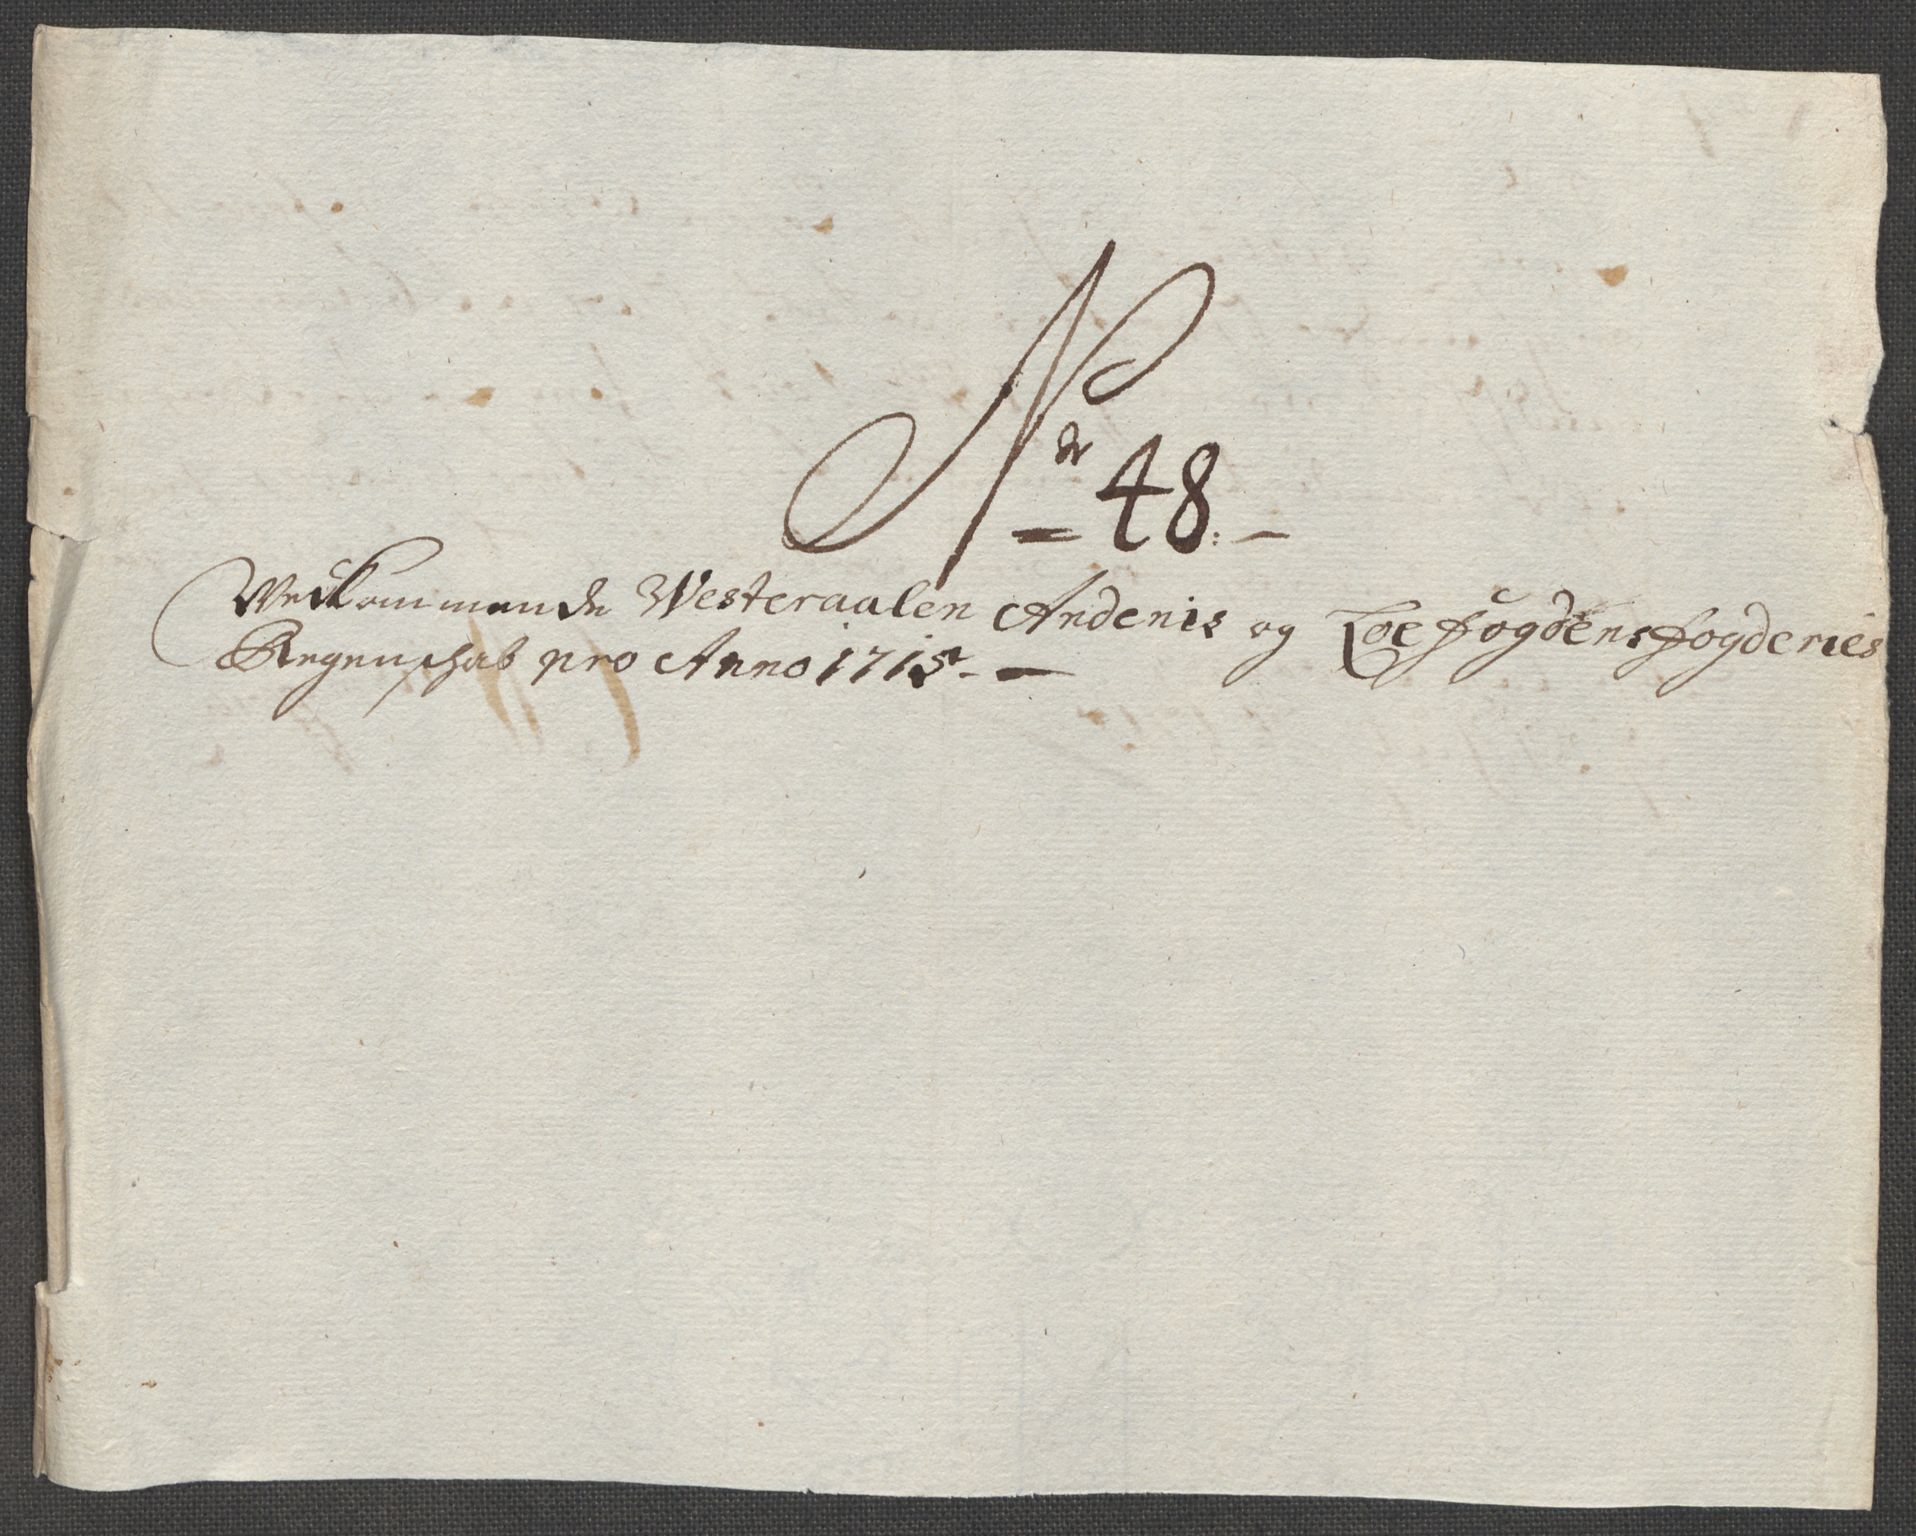 Nr 48.
Vedkommende Westeraalen Andenis og Loefogdens fogderies
Regenschab pro Anno 1715